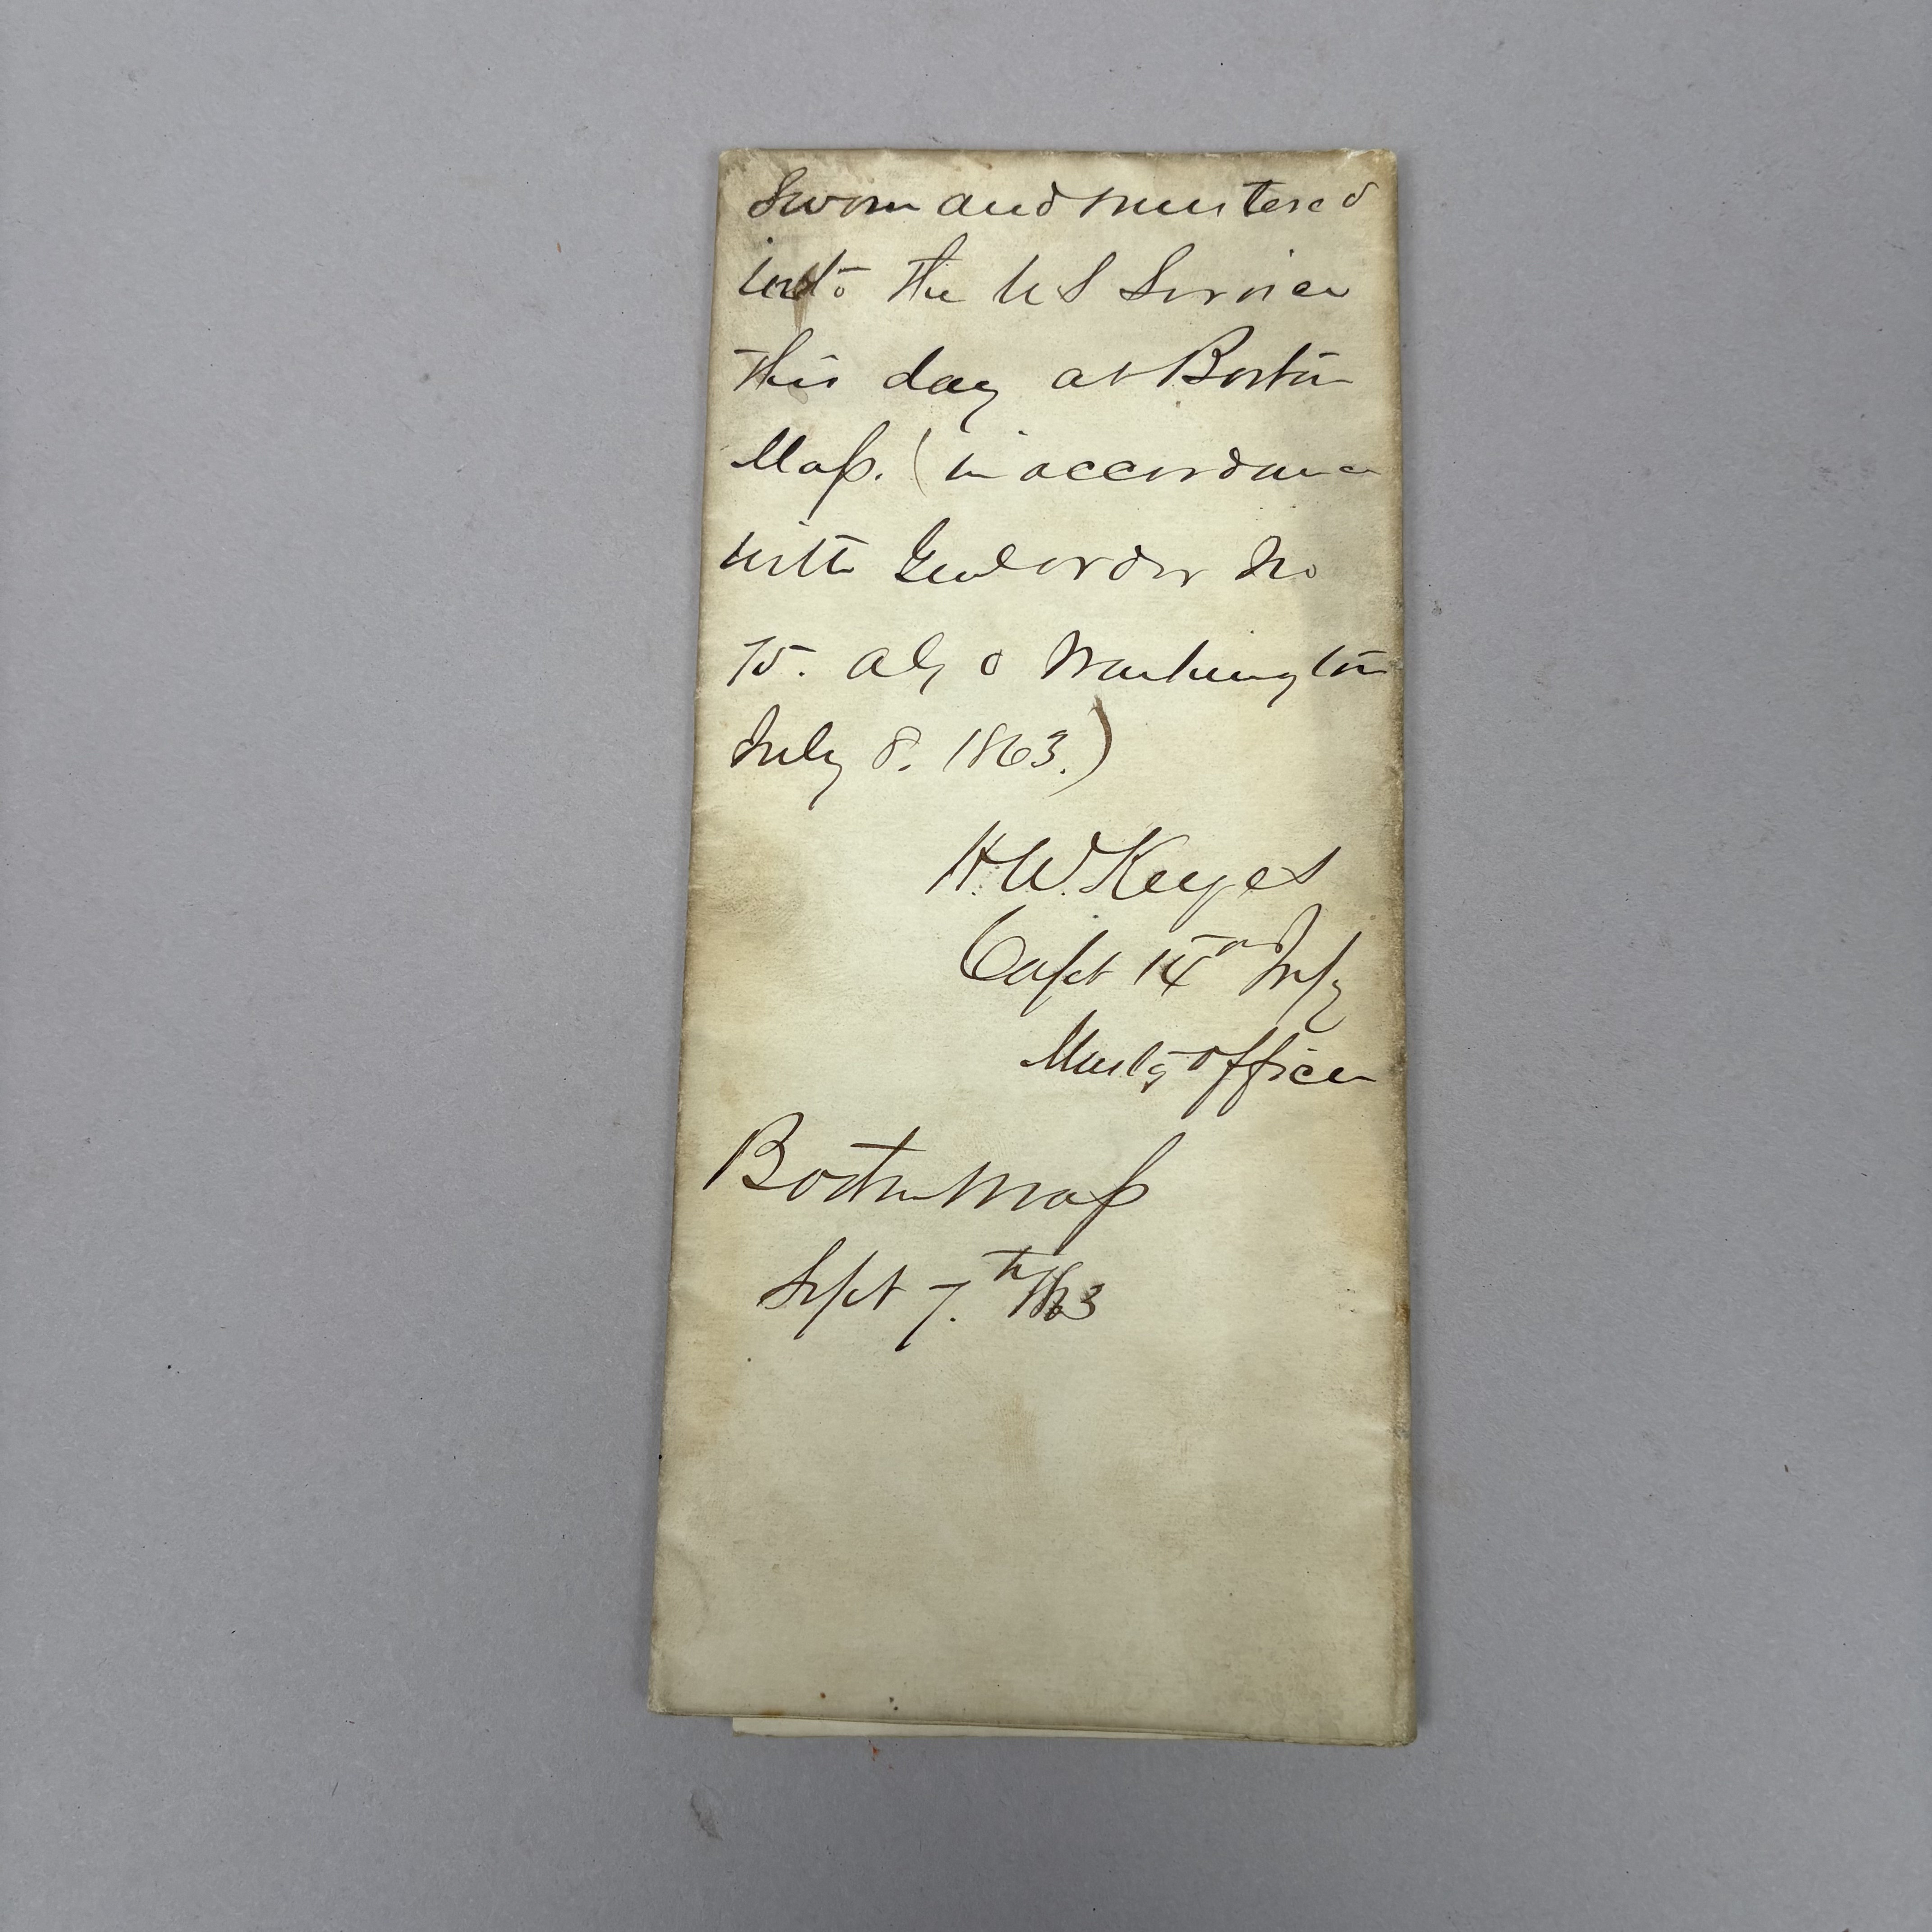 Sworn and mustered
into the U S Service
this day at Boston
Mass. (in accordance
with Genl order No
75. A G O Washington
July 8. 1863.)
H. W. Keyes
Capt 14th Infy
Mustg officer
Boston Mass
Sept 7.th 1863